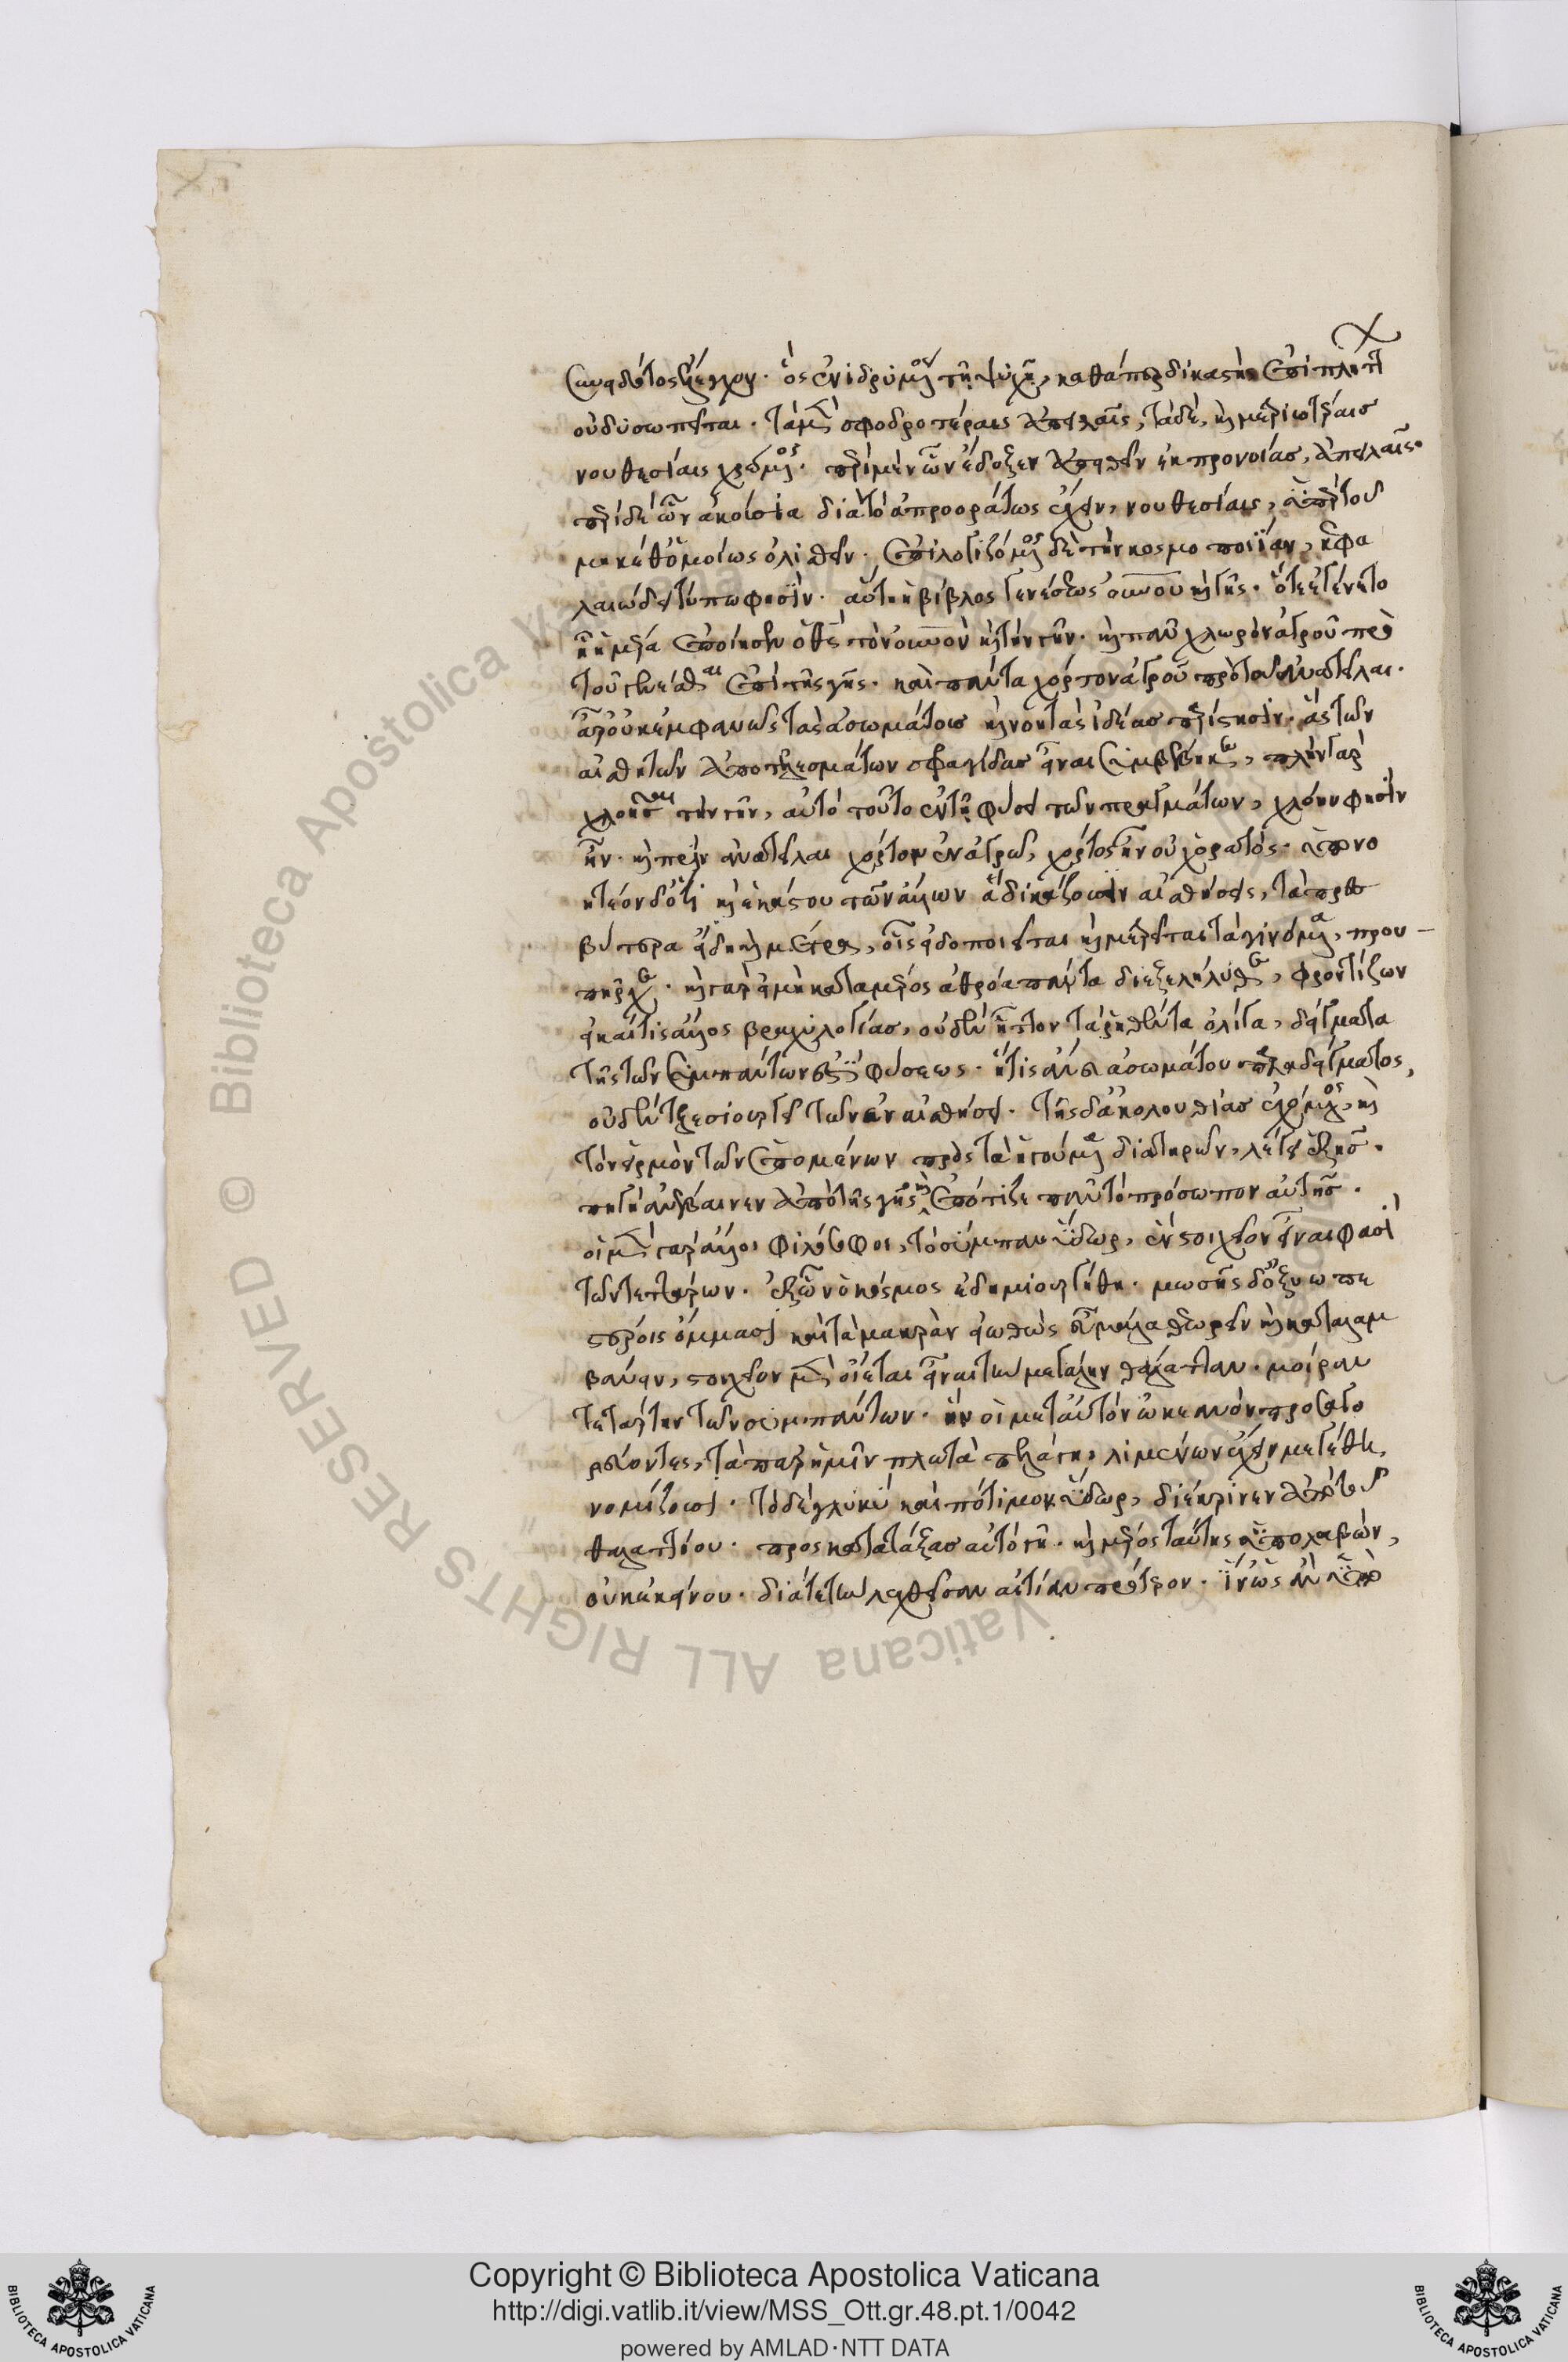 συνειδότος ἔλεγχον. ὃς ἐνιδρυμένος τῇ ψυχῇ, καθάπερ δικαστὴς ἐπιπλήττων
οὐ δυσωπεῖται. τὰ μὲν σφοδροτέραις ἀπειλαῖς, τὰ δὲ, καὶ μετριωτέραις
νουθεσίαις χρώμενος. περὶ μὲν ὧν ἔδοξεν ἀπειθεῖν ἐκ προνοίας, ἀπειλαῖς.
περὶ δὲ ὧν ἀκούσια διὰ τὸ ἀπροοράτως ἔχειν, νουθεσίαις, ὑπὲρ τοῦ
μηκέθ' ὁμοίως ὀλισθεῖν. ἐπιλογιζόμενος δὲ τὴν κοσμοποιΐαν, κεφα
λαιώδει τύπω φησίν. αὕτη ἡ βίβλος γενέσεως οὐνοῦ καὶ γῆς. ὅτε ἐγένετο
ᾗ ἡμέρα ἐποίησεν ὁ θεὸς τὸν οὐνον καὶ τὴν γῆν. καὶ πᾶν χλωρὸν ἀγροῦ πρὸ
τοῦ γενέσθαι ἐπὶ τῆς γῆς. καὶ πάντα χόρτον ἀγροῦ πρὸ τοῦ ἀνατεῖλαι.
ἆρ' οὐκ ἐμφανῶς τὰς ἀσωμάτους καὶ νοητὰς ἰδέας παρίστησιν. ἃς τῶν
αἰσθητῶν ἀποτελεσμάτων σφραγίδας εἶναι συμβέβηκε, πρὶν γὰρ
χλοῆσαι τὴν γῆν, αὐτὸ τοῦτο ἐν τῇ φύσει τῶν πραγμάτων, χλόη φησὶν
ἦν. καὶ πρὶν ἀνατεῖλαι χόρτον ἐν ἀγρῷ, χόρτος ἦν οὐχ ὁρατός. ὑπονο
ητέον δ' ὅτι καὶ ἑκάστου τῶν ἄλλων ἃ δικάζουσιν αἰσθήσεις, τὰ πρεσ
βύτερα εἴδη καὶ μέτρα, οἷς εἰδοποιεῖται καὶ μετρεῖται τὰ γινόμενα, πρου-
πῆρχε. καὶ γὰρ εἰ μὴ κατὰ μέρος ἀθρόα πάντα διεξελήλυθε, φροντίζων
εἰ καί τις ἄλλος βραχυλογίας, οὐδὲν ἧττον τὰ ῥηθέντα ὀλίγα, δείγματα
τῆς τῶν συμπάντων ἐστὶ φύσεως. ἥτις ἄνευ ἀσωμάτου παραδείγματος,
οὐδὲν τελεσιουργεῖ τῶν ἐν αἰσθήσει. τῆς δ' ἀκολουθίας ἐχόμενος, καὶ
τὸν εἱρμὸν τῶν ἑπομένων πρὸς τὰ ἡγούμενα διατηρῶν, λέγει ἑξῆς.
πηγὴ ἀνέβαινεν ἀπὸ τῆς γῆς καὶ ἐπότιζε πᾶν τὸ πρόσωπον αὐτῆς.
οἱ μὲν γὰρ ἄλλοι φιλόσοφοι, τὸ σύμπαν ὕδωρ, ἓν στοιχεῖον εἶναι φασὶ
τῶν τεττάρων. ἐξ ὧν ὁ κόσμος ἐδημιουργήθη. μωσῆς δ' ὀξυωπε
στέροις ὄμμασι καὶ τὰ μακρὰν εἰωθὼς εὖ μάλα θεωρεῖν καὶ καταλαμ
βάνειν, στοιχεῖον μὲν οἴεται εἶναι τὴν μεγάλην θάλατταν. μοίραν
τετάρτην τῶν συμπάντων. ἣν οἱ μετ' αὐτὸν ὠκεανὸν προσαγο
ρεύοντες, τὰ παρ' ἡμῖν πλωτὰ πελάγη, λιμένων ἔχειν μεγέθη,
νομίζουσι. τὸ δὲ γλυκὺ καὶ πότιμον ὕδωρ, διέκρινεν ἀπὸ τοῦ
θαλαττίου. προσκατατάξας αὐτὸ γῇ. καὶ μέρος ταύτης ὑπολαβὼν,
οὐκ ἐκείνου. διά τε τὴν λεχθεῖσαν αἰτίαν πρότερον. ἵν' ὡς ἂν ὑπὸ
Copyright © Biblioteca Apostolica Vaticana
http://digi.vatlib.it/view/MSS_Ott.gr.48.pt.1/0042
powered by AMLAD·NTT DATA